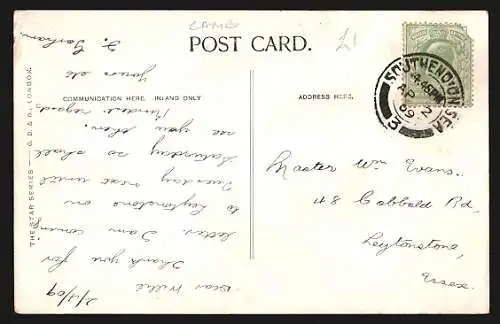 CAMB
£1
POST CARD.
COMMUNICATION HERE. INLAND ONLY.
ADDRESS HERE.
THE STAR SERIES — G.D.&D., LONDON.
SOUTHEND-ON-SEA
4.45PM
AP 2
09
3
2/4/09
Dear Willie
Thank you for
letter. I am coming
to Leytonstone on
Tuesday next until
Saturday so shall
see you then.
Kindest regards
Yours etc
F.
Master Wm Evans.
48 Cobbold Rd,
Leytonstone,
Essex.